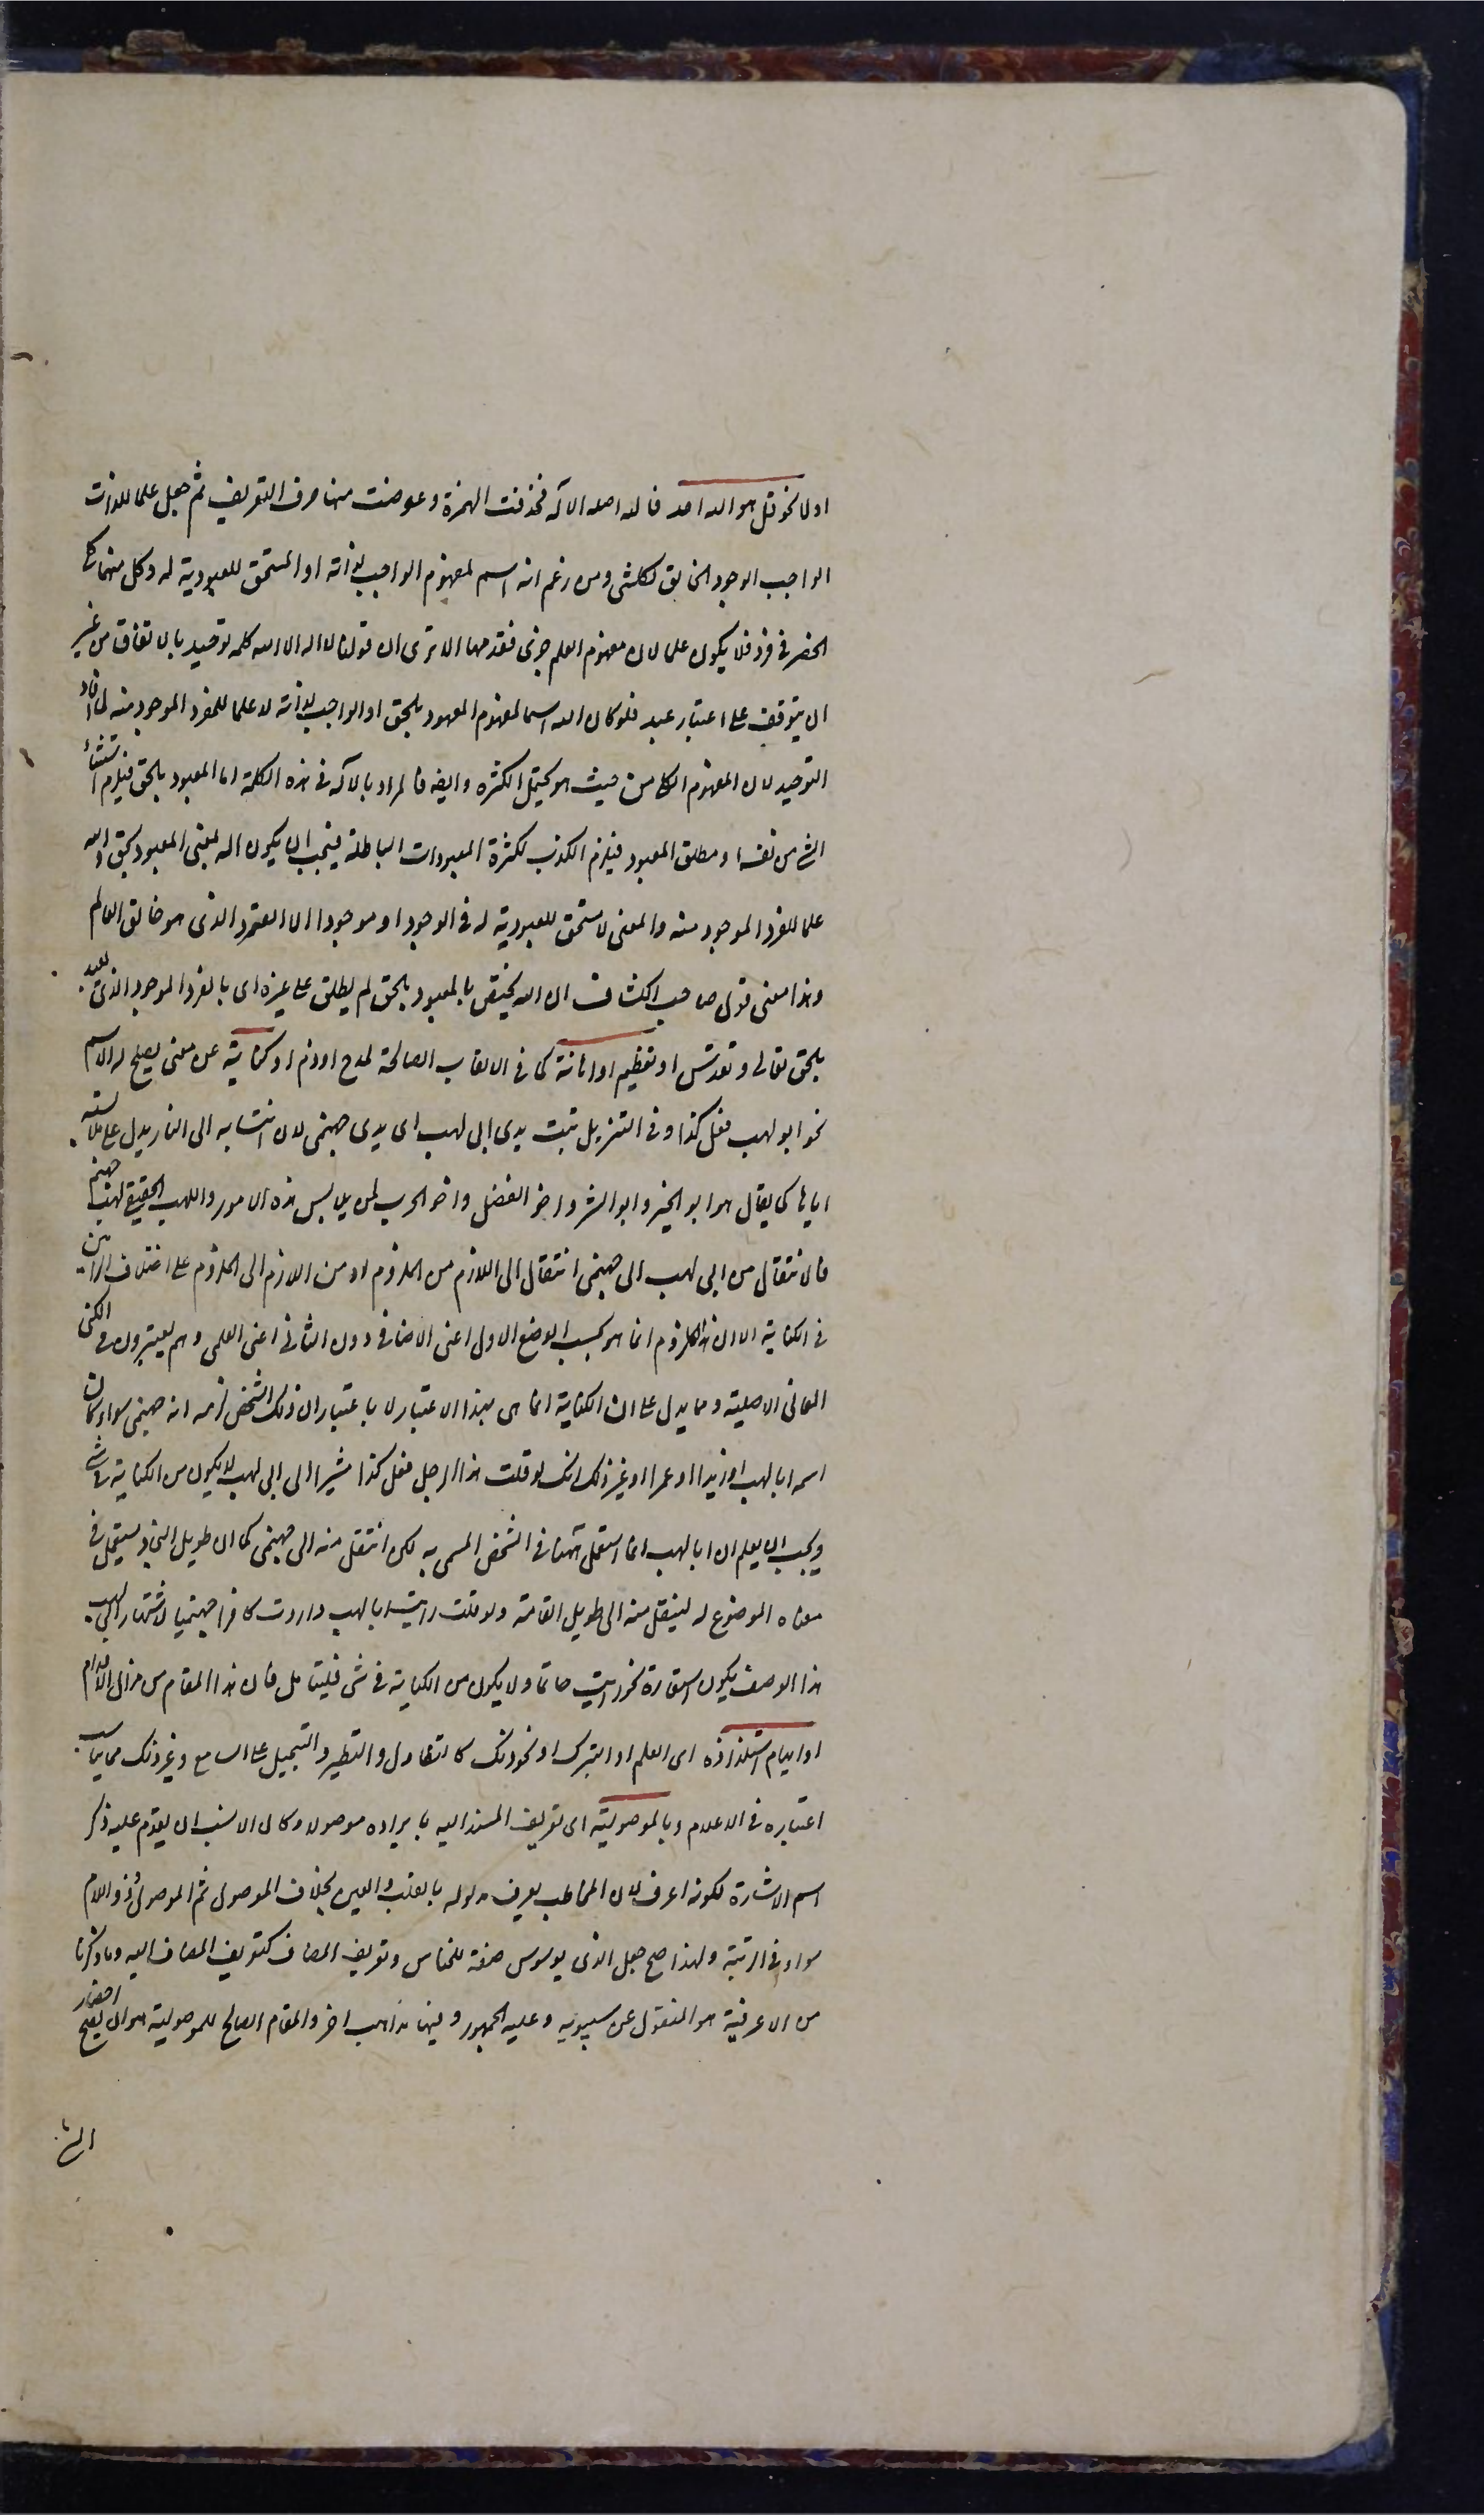 اولا نحو قل هو الله احد فالله اصله الاله فحذفت الهمزة وعوضت منها حرف التعريف ثم جعل علما للذات
الواجب الوجود الخالق لكل شئ ومن زعم انه اسم لمفهوم الواجب لذاته او المستحق للعبودية له وكل منهما كلي
انحصر في فرد فلا يكون علما لان مفهوم العلم جزئي فقد سها الا ترى ان قولنا لا اله الا الله كلمة توحيد بالاتفاق من غير
ان يتوقف على اعتبار عهد فلو كان الله اسما لمفهوم المعبود بالحق او الواجب لذاته لا علما للفرد الموجود منه لما افاد
التوحيد لان المفهوم الكلي من حيث هو يحتمل الكثرة وايضا فالمراد بالاله في هذه الكلمة اما المعبود بالحق فيلزم استثناء
الشئ من نفسه او مطلق المعبود فيلزم الكذب لكثرة المعبودات الباطلة فيجب ان يكون اله بمعنى المعبود بحق والله
علما للفرد الموجود منه والمعنى لا مستحق للعبودية له في الوجود او موجودا الا الفرد الذى هو خالق العالم
وهذا معنى قول صاحب الكشاف ان الله يختص بالمعبود بالحق لم يطلق على غيره اى بالفرد الموجود الذى يعبد
بالحق تعالى وتقدس او تعظيم او اهانة كما في الالقاب الصالحة لمدح او ذم او كناية عن معنى يصلح له الاسم
نحو ابو لهب فعل كذا وفي التنزيل تبت يدى ابى لهب اى يدى جهنمى لان انتسابه الى النار يدل على ملابسته
اياها كما يقال هو ابو الخير وابو الشر واخو الفضل واخو الحرب لمن يلابس هذه الامور واللهب الحقيقي لهب جهنم
فالانتقال من ابى لهب الى جهنمى انتقال الى اللازم من الملزوم او من اللازم الى الملزوم على اختلاف الرايين
في الكناية الا ان هذا اللزوم انما هو بحسب الوضع الاول اعنى الاضافى دون الثانى اعنى العلمى وهم يعتبرون في الكنى
المعانى الاصلية ومما يدل على ان الكناية انما هى بهذا الاعتبار لا باعتبار ان ذلك الشخص لزمه انه جهنمى سواء كان
اسمه ابا لهب او زيدا او عمرا او غير ذلك انك لو قلت هذا الرجل فعل كذا مشيرا الى ابى لهب لا يكون من الكناية في شئ
ويجب ان يعلم ان ابا لهب انما استعمل ههنا في الشخص المسمى به لكن انتقل منه الى جهنمى كما ان طويل النجاد يستعمل في
معناه الموضوع له لينتقل منه الى طويل القامة ولو قلت رايت ابا لهب واردت كافرا جهنميا لاشتهار ابى لهب
بهذا الوصف يكون استعارة نحو رايت حاتما ولا يكون من الكناية في شئ فليتامل فان هذا المقام من مزال الاقدام
او ايهام استلذاذه اى العلم او التبرك او نحو ذلك كالتفاول والتطير والتسجيل على السامع وغير ذلك مما يناسب
اعتباره في الاعلام وبالموصولية اى تعريف المسند اليه بايراده موصولا وكان الانسب ان يقدم عليه ذكر
اسم الاشارة لكونه اعرف لان المخاطب يعرف مدلوله بالقلب والعين بخلاف الموصول ثم الموصول وذو اللام
سواء في الرتبة ولهذا صح جعل الذى يوسوس صفة للخناس وتعريف المضاف كتعريف المضاف اليه وما ذكرنا
من الاعرفية هو المنقول عن سيبويه وعليه الجمهور وفيها مذاهب اخر والمقام الصالح للموصولية هو ان يصح احضار
الشئ